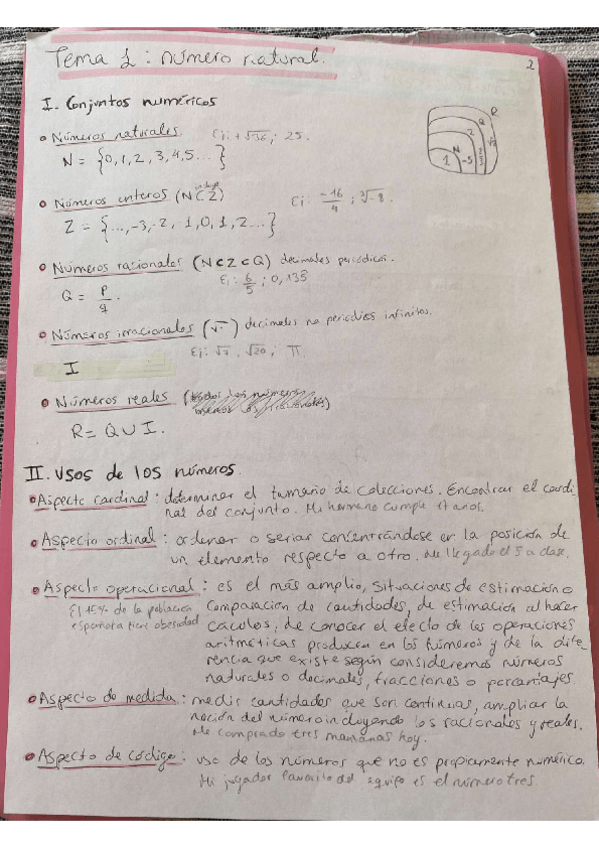 2
Tema 1: número natural.
I. Conjuntos numéricos
Números naturales. Ej: +√36; 25.
N = {0,1,2,3,4,5...}
R
Q
Z
N
1 -5
Números enteros (N⊂Z) Ej: -16/4 ; ∛-8.
Z = {..., -3, -2, -1, 0, 1, 2...}
Números racionales (N⊂Z⊂Q) decimales periódicos.
Ej: 6/5 ; 0,138
Q = p/q.
Números irracionales (√‾) decimales no periódios infinitos.
Ej: √7, √20, π
I
Números reales (todos los números
R = Q∪I.
II. Usos de los números.
Aspecto cardinal: determinar el tumaño de colecciones. Encontrar el cardi-
nal del conjunto. Mi hermano cumple 17 anos.
Aspecto ordinal: ordenar o seriar concentrándose en la posición de
un elemento respecto a otro. He llegado el 5 a clase.
Aspecto operacional: es el más amplio, situaciones de estimación o
El 10% de la población comparación de cantidades, de estimación al hacer
española tiene obesidad caculos, de conocer el efecto de las operaciones
aritméticas producen en los números y de la dife-
rencia que existe según consideremos números
naturales o decimales, fracciones o porcentajes.
Aspecto de medida: medir cantidades que son continuas, ampliar la
noción del número incluyendo los racionales y reales.
He comprado tres manzanas hoy.
Aspecto de código: uso de los números que no es propiamente numérico.
Mi jugador favorito del equipo es el número tres.